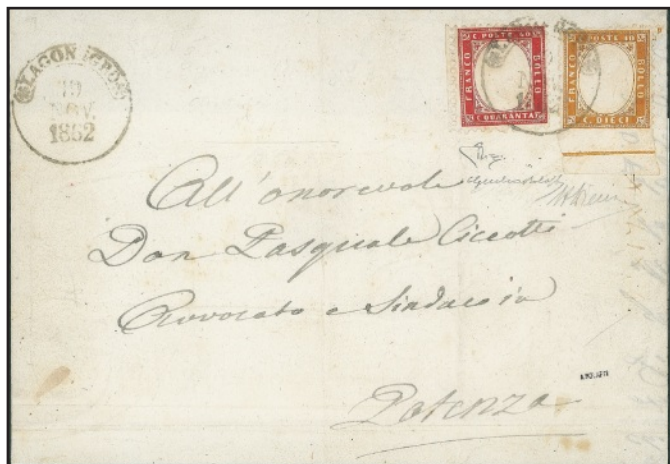 LAGONEGRO
10
NOV.
1862
C. POSTE 40
FRANCO
BOLLO
C. QUARANTA
C. POSTE 10
FRANCO
BOLLO
C. DIECI
All'onorevole
Don Pasquale Ciccotti
Avvocato e Sindaco in
Potenza